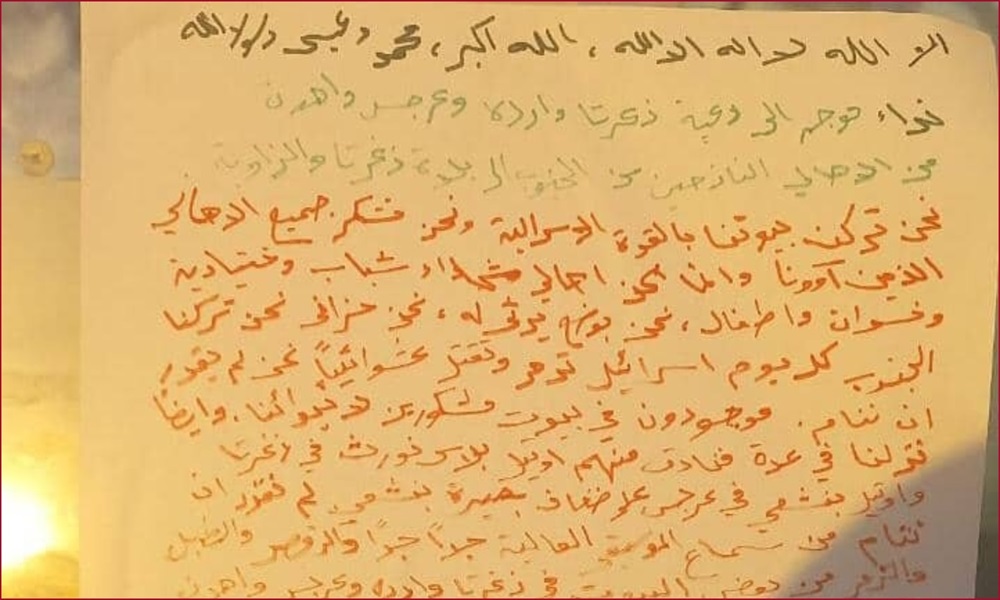 الا الله لا اله الا الله ، الله اكبر ، محمد وعيسى
نداء موجه الى زغرتا وارده وعرجس واهدن
من الاهالي النازحين من الجنوب الى بلدة زغرتا والزاوية
نحن تركنا بيوتنا بالقوة الاسرالية ونحن نشكر جميع الاهالي
الذين آوونا وانا نحن اهالي شهداء شباب
ونسوان واطفال ، نحن بوضع يرثى له ، نحن نحن تركنا
الجنوب كل يوم اسرائيل تدمر وتقتل عشوائيًا نحن لم يقدر
ان ننام . موجودون في بيوت مشكورين لايوائنا . وايضًا
نزلنا في عدة فنادق منهم اوتيل بلاس نورث في زغرتا
واوتيل بنشعي في عرجس على ضفاف بحيرة بنشعي لم نقدر ان
ننام من سماع الموسيقى العالية جدًا جدًا والرقص والطبل
والزمر من بعض البيوت في زغرتا وارده وعرجس واهدن